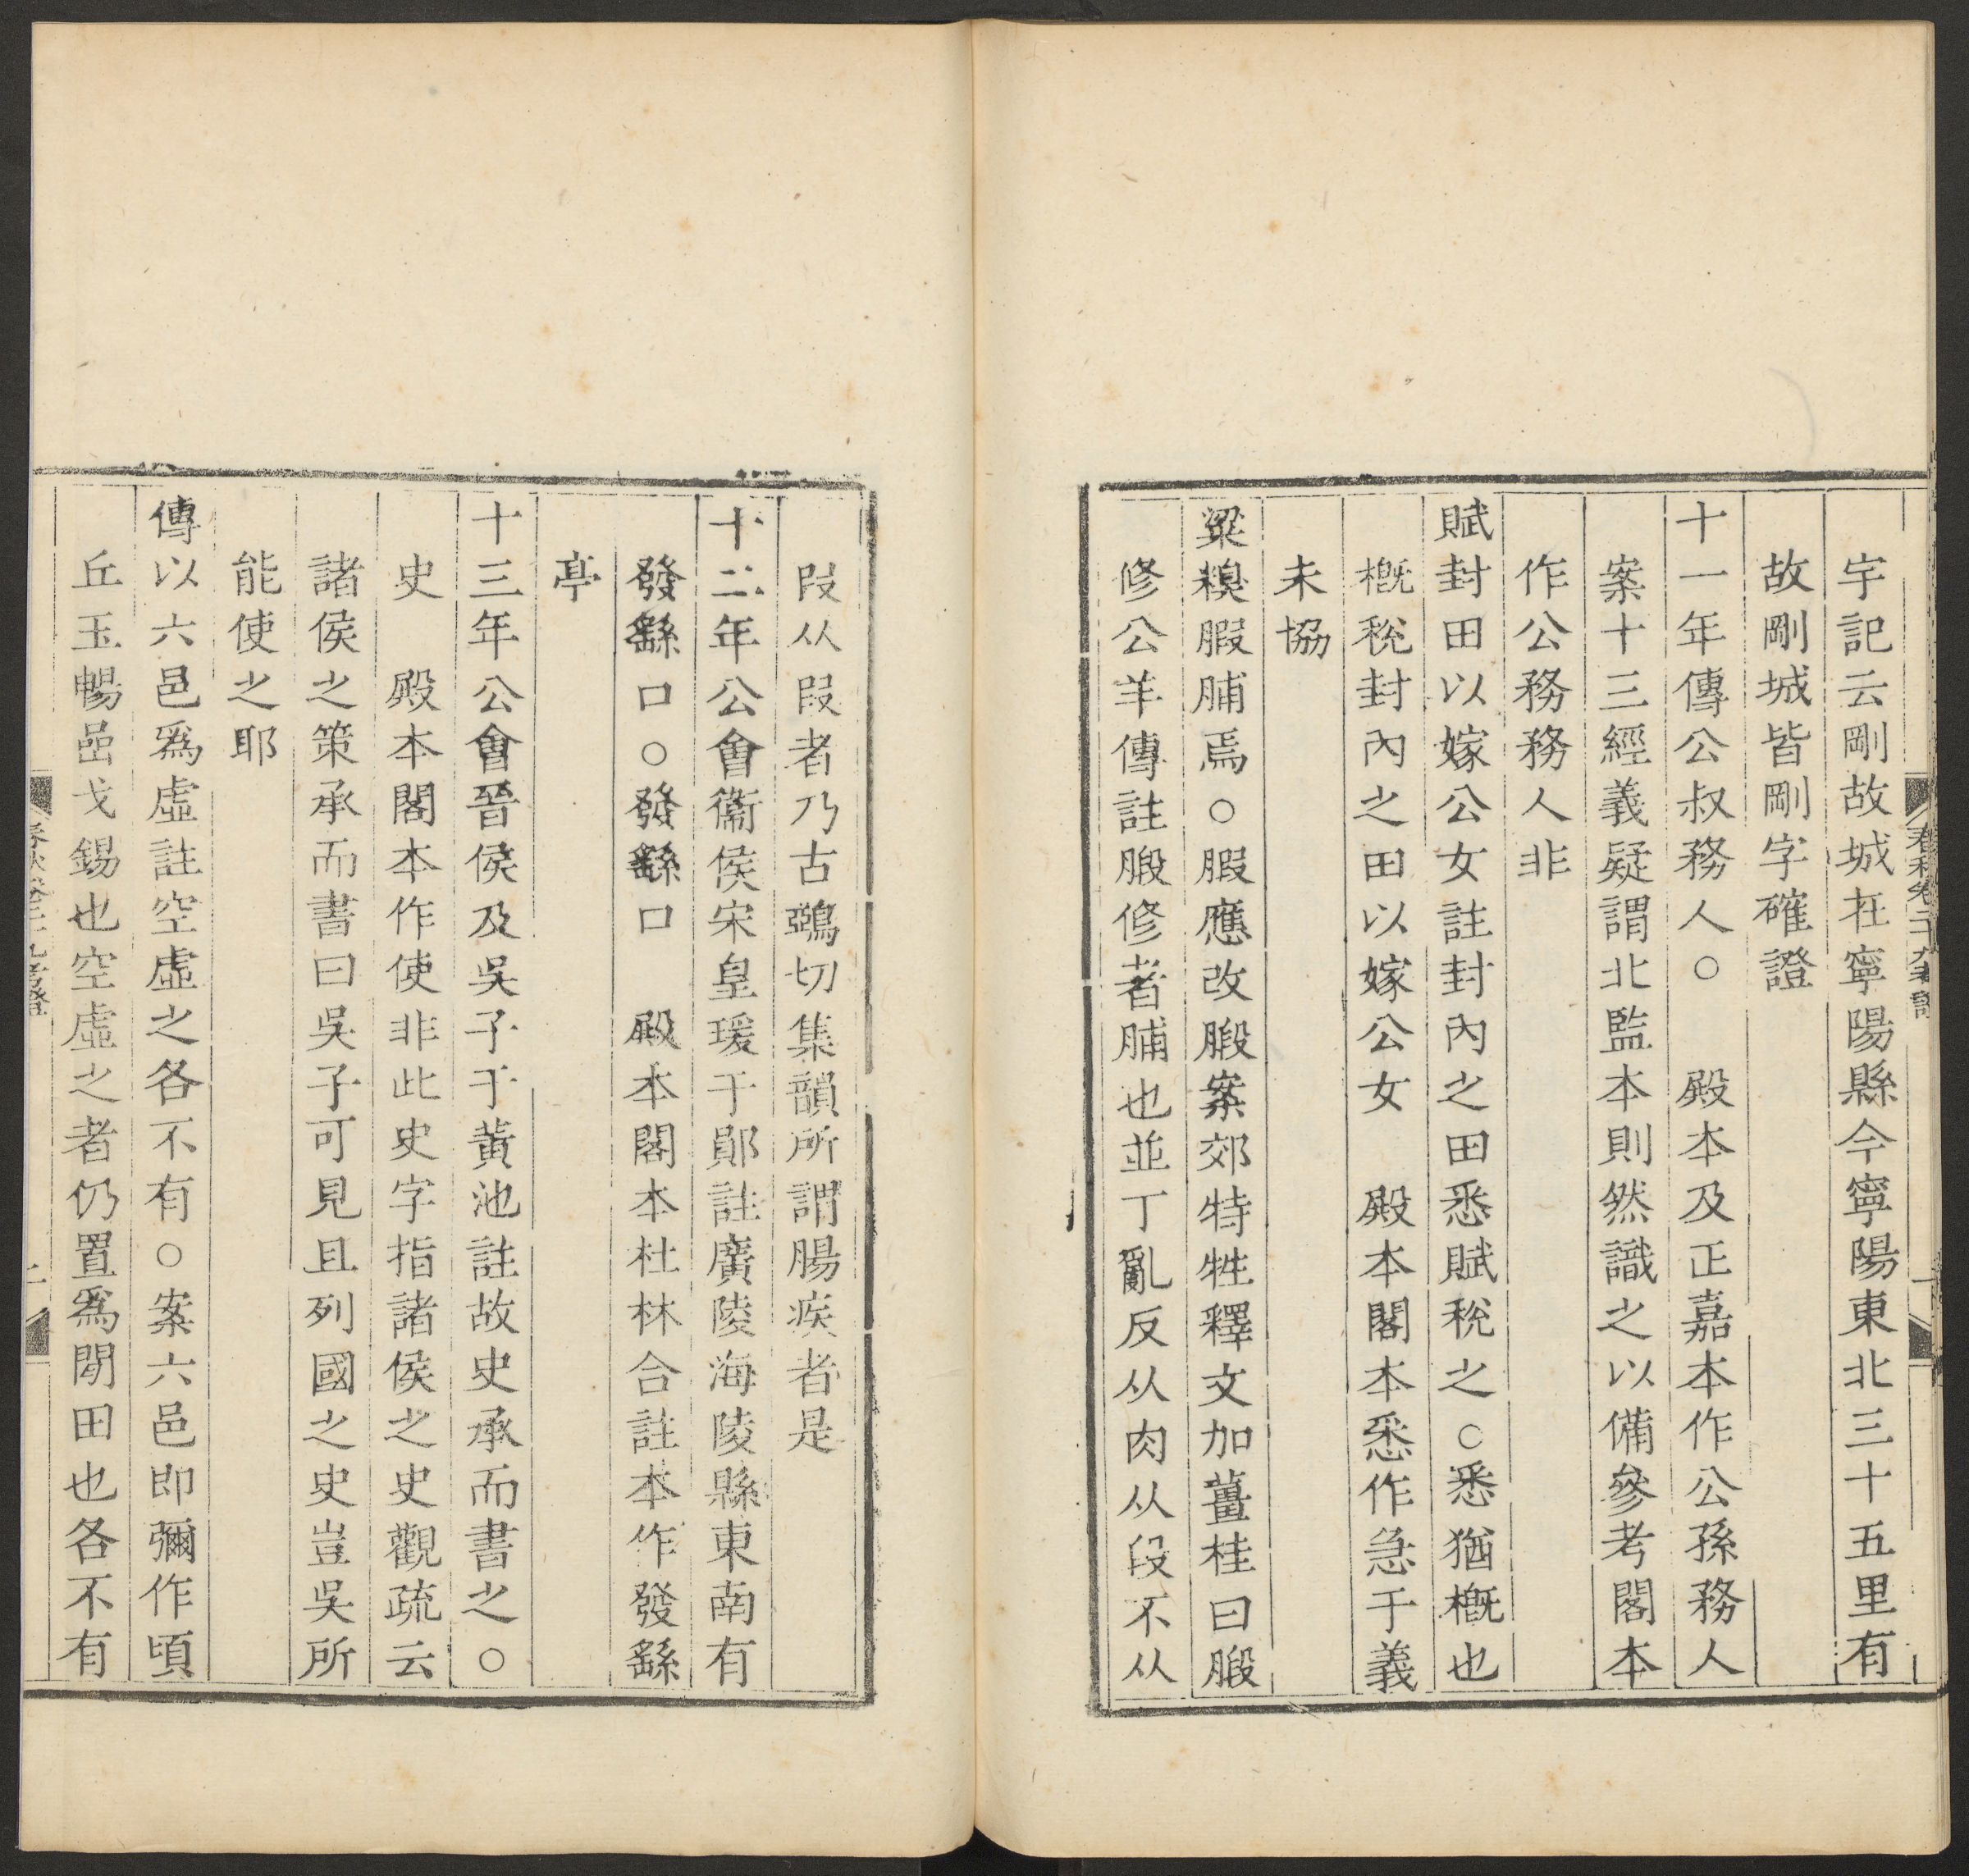 春秋卷二十九考證
宇記云剛故城在寧陽縣今寧陽東北三十五里有
故剛城皆剛字確證
十一年傳公叔務人○　殿本及正嘉本作公孫務人
案十三經義疑謂北監本則然識之以備參考閣本
作公務務人非
賦封田以嫁公女註封內之田悉賦稅之○悉猶槪也
槪稅封內之田以嫁公女　殿本閣本悉作急于義
未協
粱糗腵脯焉○腵應改腶案郊特牲釋文加薑桂曰腶
修公羊傳註腶修者脯也並丁亂反从肉从段不从
叚从叚者乃古鵶切集韻所謂腸疾者是
十二年公會衞侯宋皇瑗于鄖註廣陵海陵縣東南有
發繇口○發繇口　殿本閣本杜林合註本作發繇
亭
十三年公會晉侯及吳子于黃池註故史承而書之○
史　殿本閣本作使非此史字指諸侯之史觀疏云
諸侯之策承而書曰吳子可見且列國之史豈吳所
能使之耶
傳以六邑爲虛註空虛之各不有○案六邑卽彌作頃
丘玉暢嵒戈錫也空虛之者仍置爲閒田也各不有
春秋卷二十九考證
二